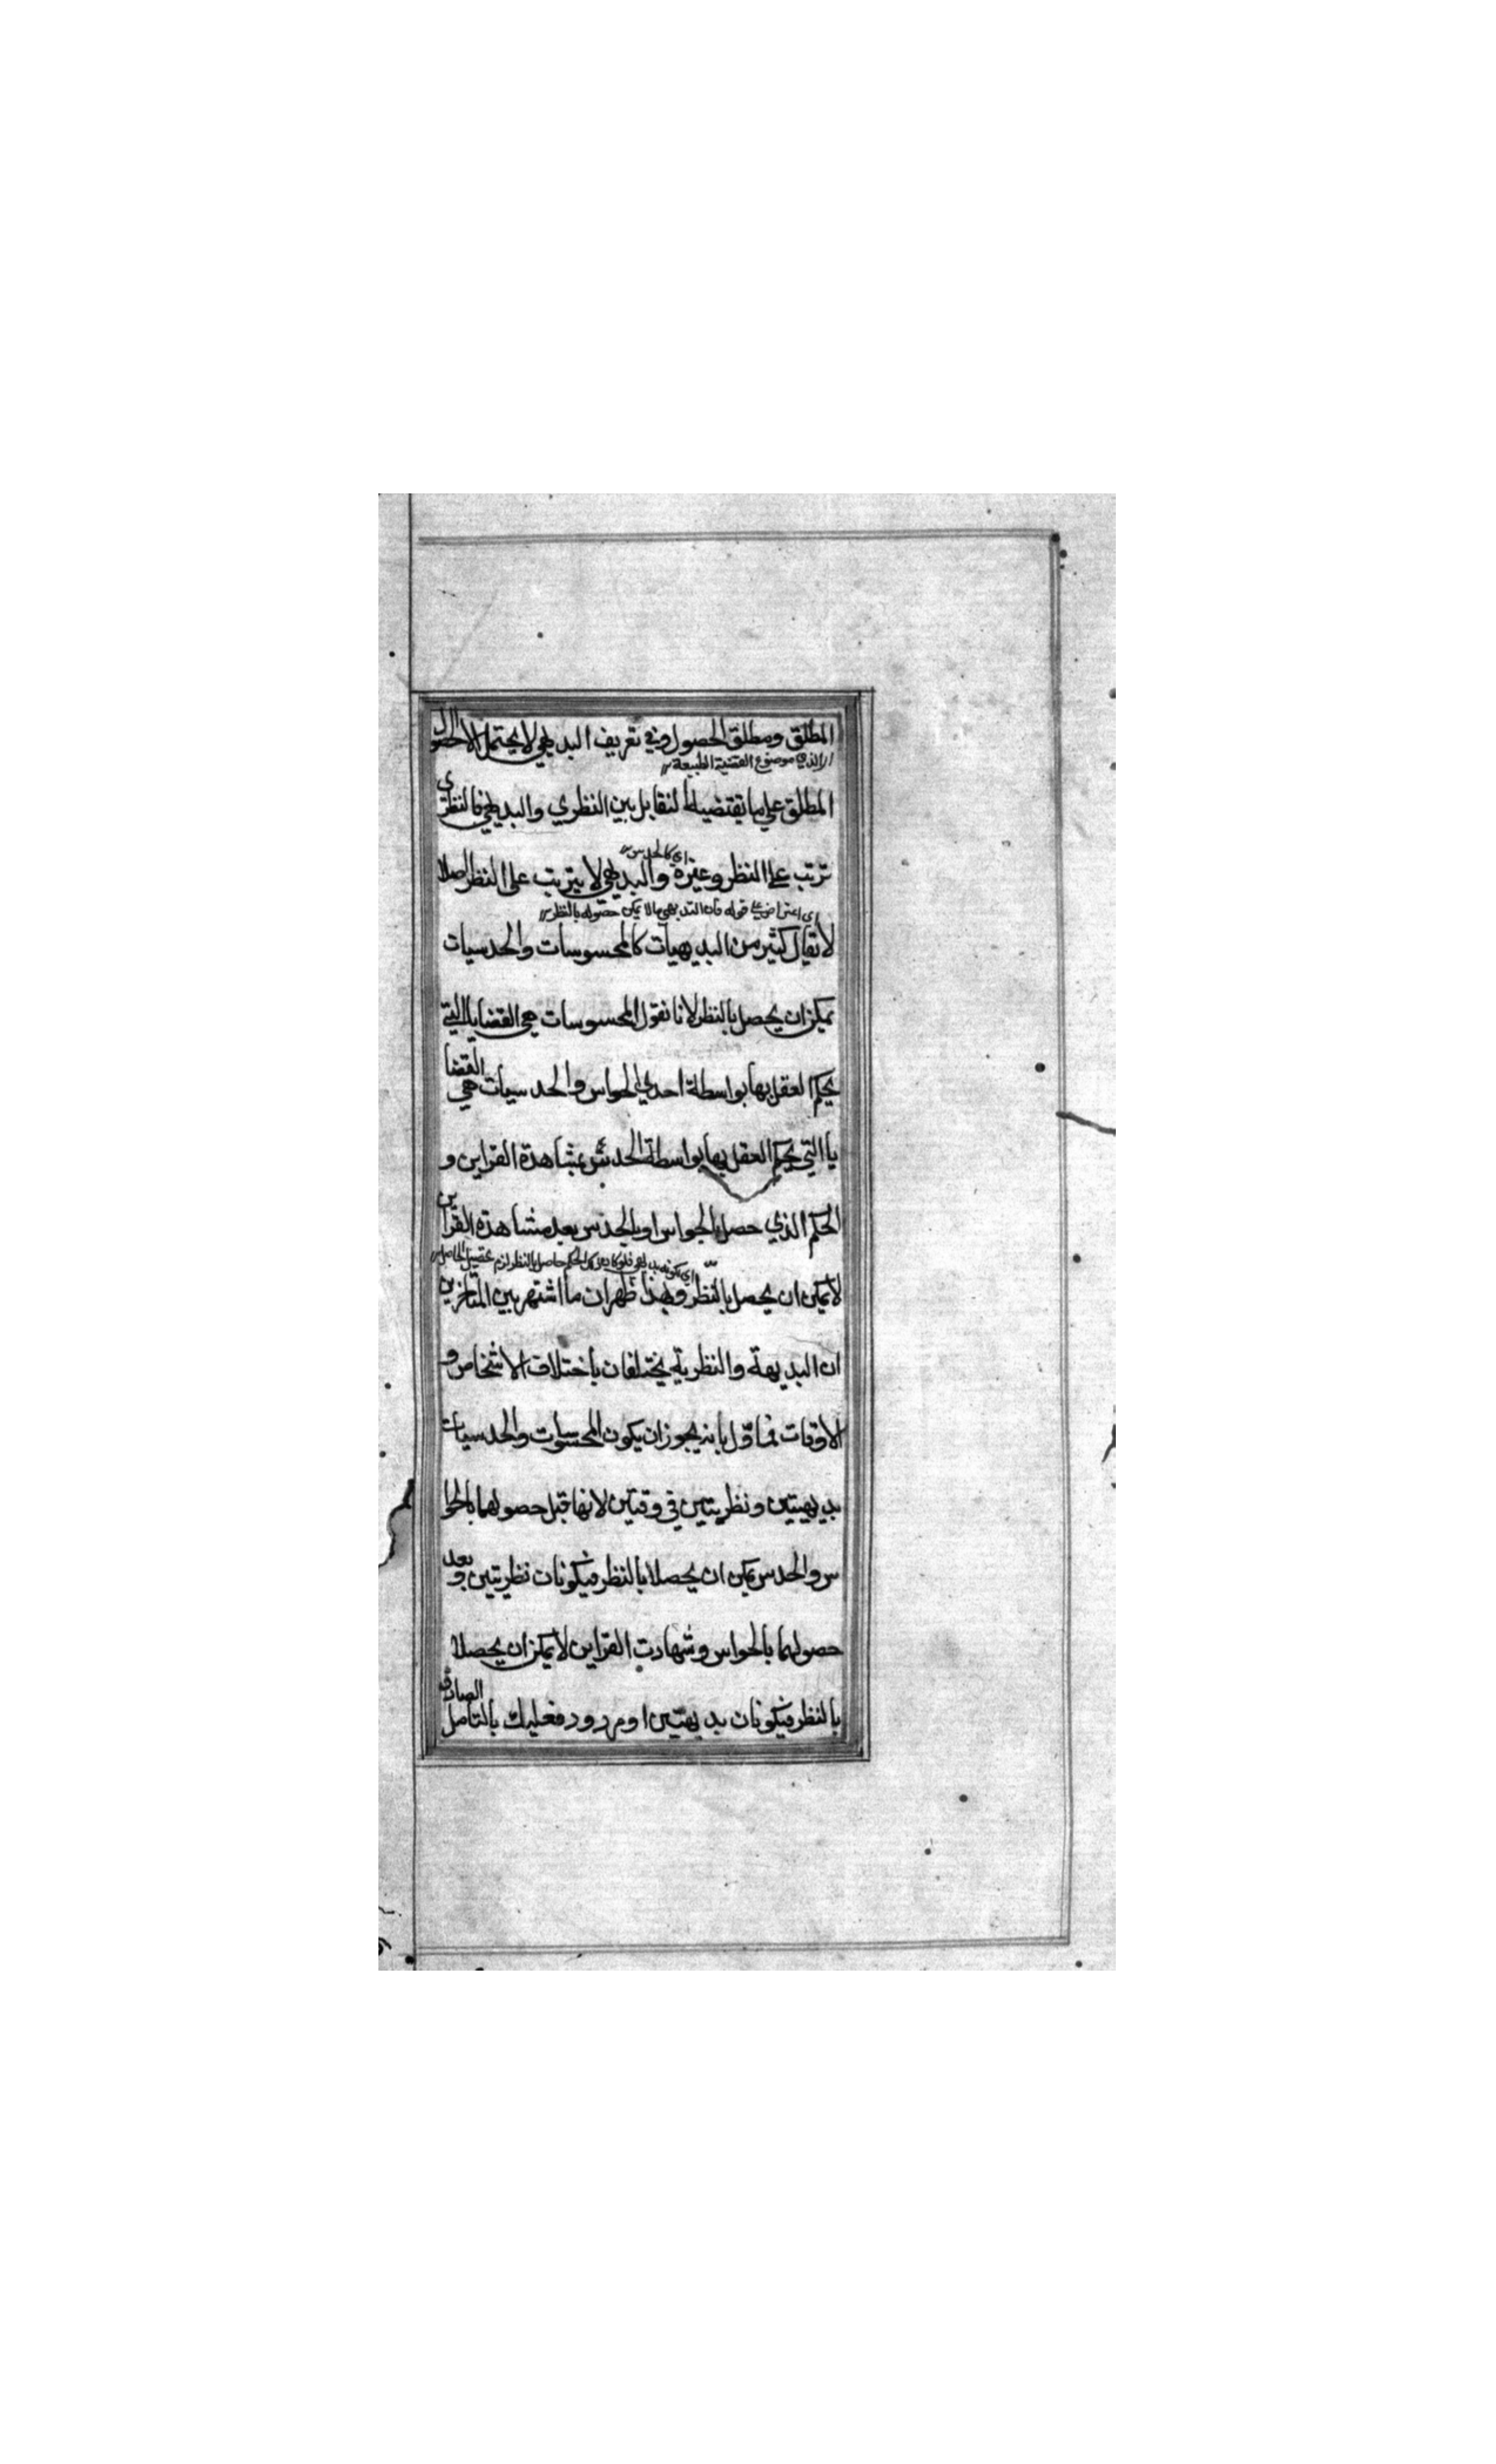 المطلق ومطلق الحصول وفي تعريف البديهي لا يحتمل الا الحصول
الذي موضوع القضية الطبيعة
المطلق علي ما يقتضيه التقابل بين النظري والبديهي فالنظري
اي كالحدس
ترتب علي النظر وغيره والبديهي لا يترتب علي النظر اصلا
اي اعتراض علي قوله فان البديهي ما لا يمكن حصوله بالنظر
لا يقال كثير من البديهيات كالمحسوسات والحدسيات
يمكن ان يحصل بالنظر لانا نقول المحسوسات هي القضايا التي
يحكم العقل بها بواسطة احدي الحواس والحدسيات هي القضا
يا التي يحكم العقل بها بواسطة الحدس بمشاهدة القراين و
الحكم الذي حصل بالحواس او بالحدس بعد مشاهدة القراين
حاصل بالنظر لزم تحصيل الحاصل
لا يمكن ان يحصل بالنظر وبهذا ظهر ان ما اشتهر بين المتاخرين
ان البديهة والنظرية يختلفان باختلاف الاشخاص و
الاوقات فماول بانه يجوز ان يكون المحسوسات والحدسيات
بديهيتين ونظريتين في وقتين لانها قبل حصولهما بالحوا
س والحدس يمكن ان يحصلا بالنظر فيكونان نظريتين وبعد
حصولهما بالحواس وشهادت القراين لا يمكن ان يحصلا
بالنظر فيكونان بديهتين او مردود فعليك بالتامل الصادق